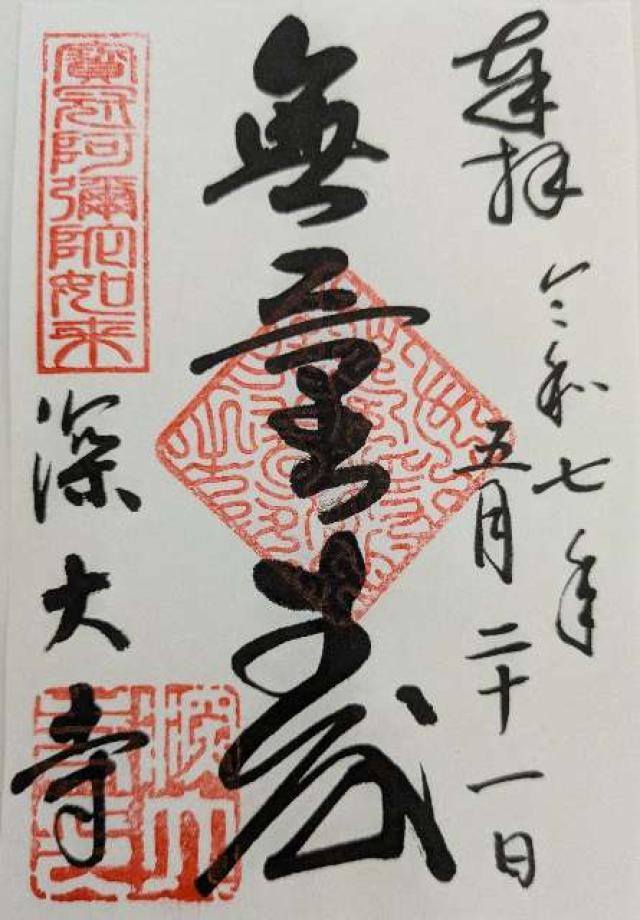 奉拝
令和七年
五月二十一日
無量寿
寶冠阿彌陀如来
深大寺